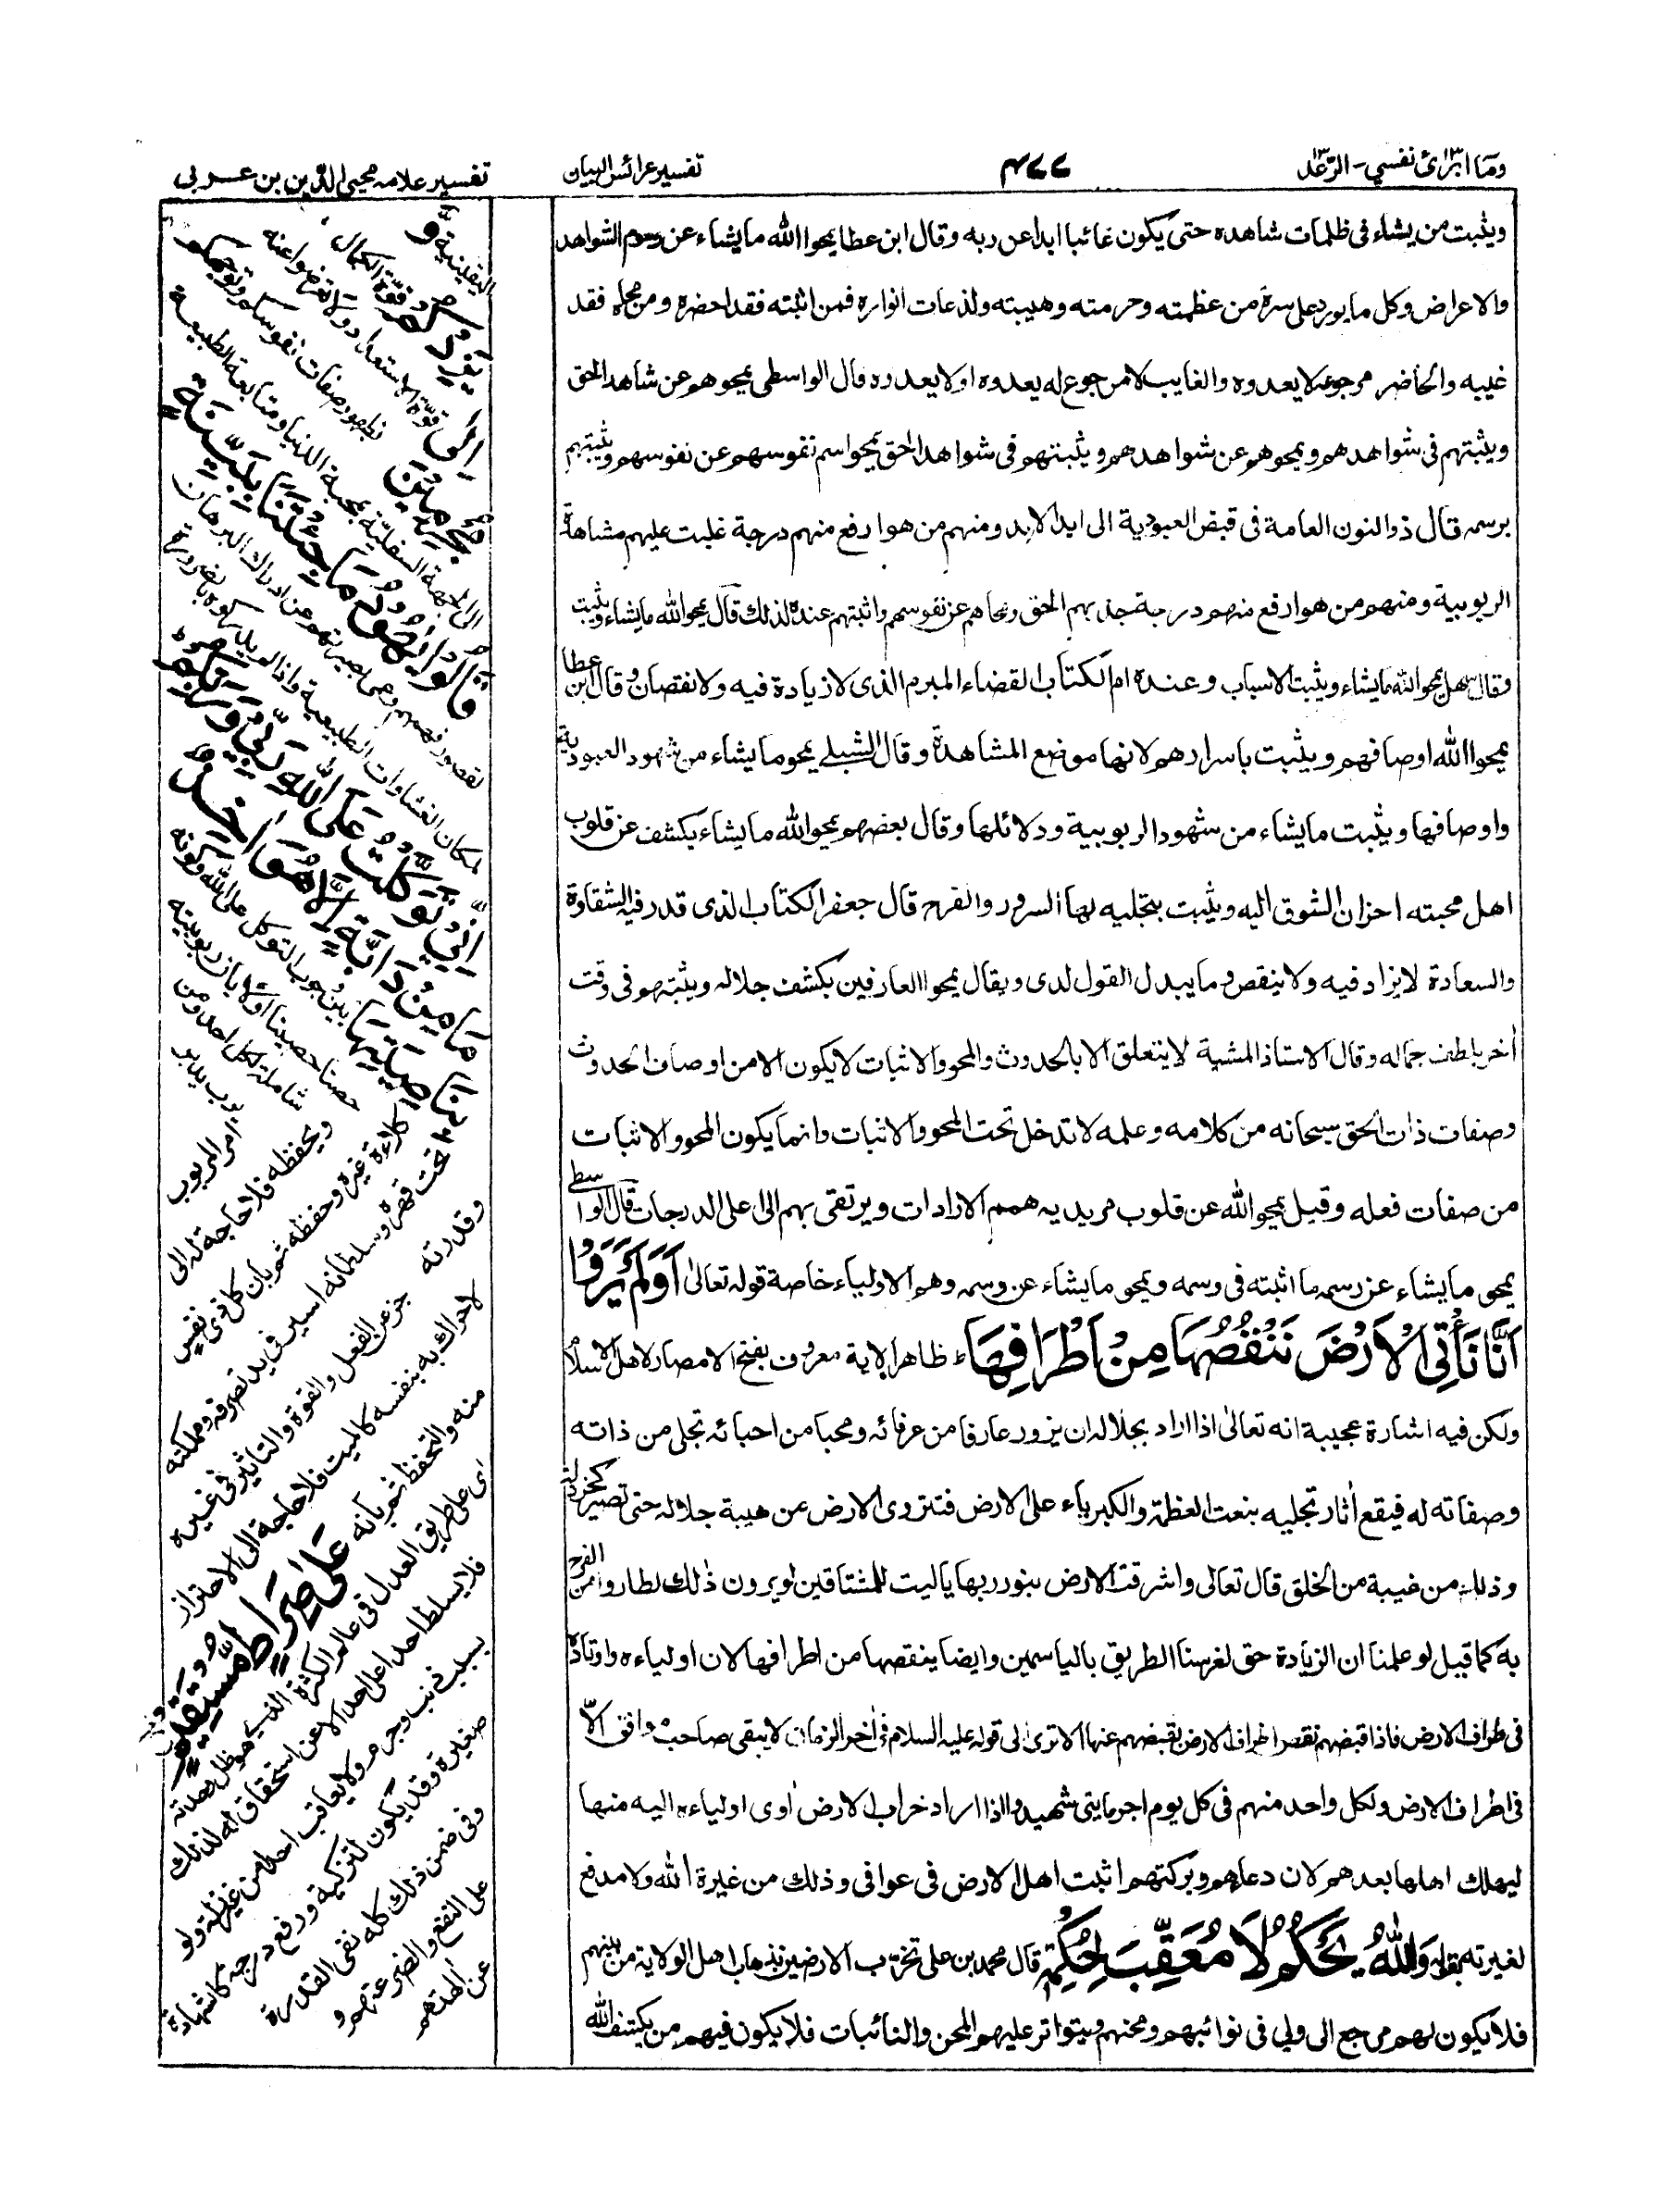 وما ابرئ نفسي - الرعد
٤٧٧
تفسير عرائس البيان
تفسير علامه محيي الدين بن عربي
ويثبت من يشاء في ظلمات شاهده حتى يكون غائبا ابدا عن ربه وقال ابن عطا يمحوا الله ما يشاء عن رسوم الشواهد
والاعراض وكل ما يورد على سره من عظمته وحرمته وهيبته ولذعات انواره فمن اثبته فقد احضره ومن محاه فقد
غيبه والحاضر مرجوعه لا يعدوه والغايب لا مرجوع له يعدوه اولا يعدوه قال الواسطى يمحوهم عن شاهد الحق
ويثبتهم في شواهدهم ويمحوهم عن شواهدهم ويثبتهم في شواهد الحق يمحوا اسم نفوسهم عن نفوسهم ويثبتهم
برسمه قال ذوالنون العامة في قبض العبودية الى ابد الابد ومنهم من هو ارفع منهم درجة غلبت عليهم مشاهدة
الربوبية ومنهم من هو ارفع منهم درجة جذبهم الحق ومحاهم عن نفوسهم واثبتهم عنده لذلك قال يمحو الله ما يشاء ويثبت
وقال سهل يمحو الله ما يشاء ويثبت الاسباب وعنده ام الكتاب القضاء المبرم الذى لا زيادة فيه ولا نقصان وقال ابن عطا
يمحوا الله اوصافهم ويثبت باسرارهم لانها موضع المشاهدة وقال الشبلى يمحو ما يشاء من شهود العبودية
واوصافها ويثبت ما يشاء من شهود الربوبية ودلائلها وقال بعضهم يمحو الله ما يشاء يكشف عن قلوب
اهل محبته احزان الشوق اليه ويثبت بتجليه لها السرور والفرح قال جعفر الكتاب الذى قدر فيه الشقاوة
والسعادة لا يزاد فيه ولا ينقص وما يبدل القول لدى ويقال يمحوا العارفين بكشف جلاله ويثبتهم فى وقت
اخر بلطف جماله وقال الاستاذ المشية لا يتعلق الا بالحدوث والمحو والاثبات لا يكون الا من اوصاف الحدوث
وصفات ذات الحق سبحانه من كلامه وعلمه لا تدخل تحت المحو والاثبات وانما يكون المحو والاثبات
من صفات فعله وقيل يمحو الله عن قلوب مريديه همم الارادات ويرتقى بهم الى اعلى الدرجات قال الواسطى
يمحو ما يشاء عن رسمه ما اثبته في وسمه ويمحو ما يشاء عن وسمه وهو الاولياء خاصة قوله تعالى اَوَلَمْ يَرَوْا
اَنَّا نَأْتِى الْاَرْضَ نَنْقُصُهَا مِنْ اَطْرَافِهَا ط ظاهر الاية معروف بفتح الامصار لاهل الاسلام
ولكن فيه اشارة عجيبة انه تعالى اذا اراد بجلاله ان يزور عارفا من عرفائه ومحبا من احبائه تجلى من ذاته
وصفاته له فيقع اثار تجليه بنعت العظمة والكبرياء على الارض فتنزوى الارض من هيبة جلاله حتى تصير كخردلة
وذلك من غيبة من الخلق قال تعالى واشرقت الارض بنور ربها ياليت للمشتاقين لو يرون ذلك لطاروا من الفرح
به كما قيل لو علمنا ان الزيادة حق لغرسنا الطريق بالياسمين وايضا ينقصها من اطرافها لان اولياءه واوتاده
في اطراف الارض فاذا قبضهم نقص اطراف الارض بقبضهم عنها الا ترى الى قوله عليه السلام في اخر الزمان لا يبقى صاحب وافق الا
في اطراف الارض ولكل واحد منهم في كل يوم اجر مايتى شهيد واذا اراد خراب الارض اوى اولياءه اليه منها
ليهلك اهلها بعدهم لان دعاءهم وبركتهم اثبت اهل الارض فى عوافى وذلك من غيرة الله ولا مدفع
لغيرته بقوله وَاللّٰهُ يَحْكُمُ لَا مُعَقِّبَ لِحُكْمِهٖ قال محمد بن على تخرب الارضين بذهاب اهل الولاية من بينهم
فلا يكون لهم مرجع الى ولي في نوائبهم ومحنهم ويتواتر عليهم المحن والنائبات فلا يكون فيهم من يكشف الله
اليقينية و
يَزِدْكُمْ قوة الكمال
اِلٰى قوة الاستعداد ولا تعرضوا عنه
بظهور صفات نفوسكم وتوجهكم
مُجْرِمِيْنَ
الى الجهة السفلية بمحبة الدنيا ومتابعة الطبيعة
قَالُوْا يٰهُوْدُ مَا جِئْتَنَا بِبَيِّنَةٍ
لقصور فهمهم وعمى بصيرتهم عن ادراك البرهان
لمكان الغشاوات الطبيعية واذا لم يدركوه بالضرورة
اِنِّىْ تَوَكَّلْتُ عَلَى اللّٰهِ رَبِّىْ وَرَبِّكُمْ
مَا مِنْ دَابَّةٍ اِلَّا هُوَ اٰخِذٌ
بِنَاصِيَتِهَا بين وجوب التوكل على الله وكونه
حصنا حصينا اولا بان ربوبيته
شاملة لكل احد ومن
يرب يدبر
امر المربوب
ويحفظه فلا حاجة له الى
كلاءة غيره وحفظه ثم بان كل ذى نفس
تحت قهره وسلطانه اسير فى يد تصرفه ومملكته
وقدرته
عاجز عن الفعل والقوة والتاثير فى غيره
لا حراك به بنفسه كالميت فلا حاجة الى الاحتراز
منه والتحفظ ثم بانه عَلٰى صِرَاطٍ مُّسْتَقِيْمٍ
اى على طريق العدل فى عالم الكثرة الذى هو ظل وحدته
فلا يسلط احدا على احد الا عن استحقاق له لذلك
بسبب ذنب وجرم ولا يعاقب احدا من غير زلة ولو
صغيرة وقد يكون لتزكية ورفع درجة كالشهادة
وفى ضمن ذلك كله نفى القدرة
على النفع والضر عنهم و
عن الهتهم